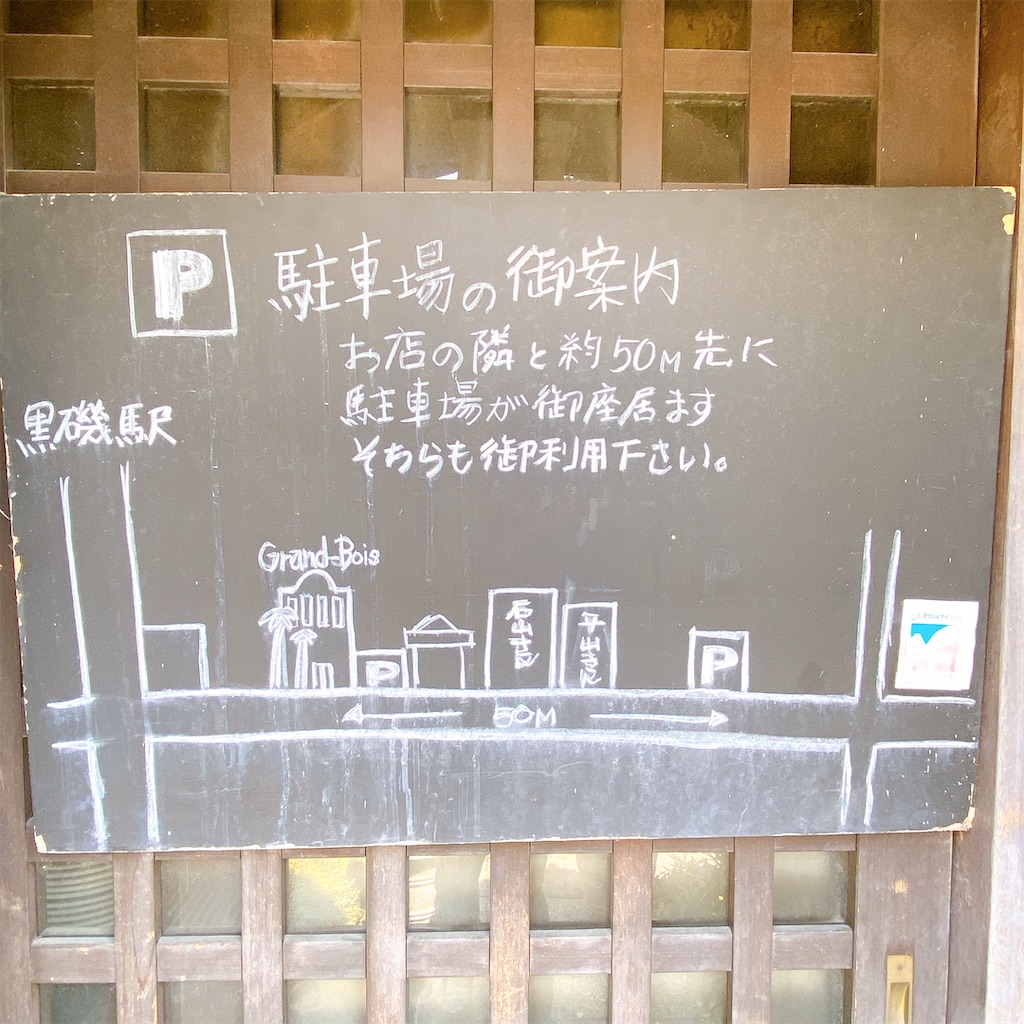 P
駐車場の御案内
お店の隣と約50M先に
駐車場が御座居ます
そちらも御利用下さい。
黒磯駅
Grand-Bois
石山さん
平山さん
P
P
50M